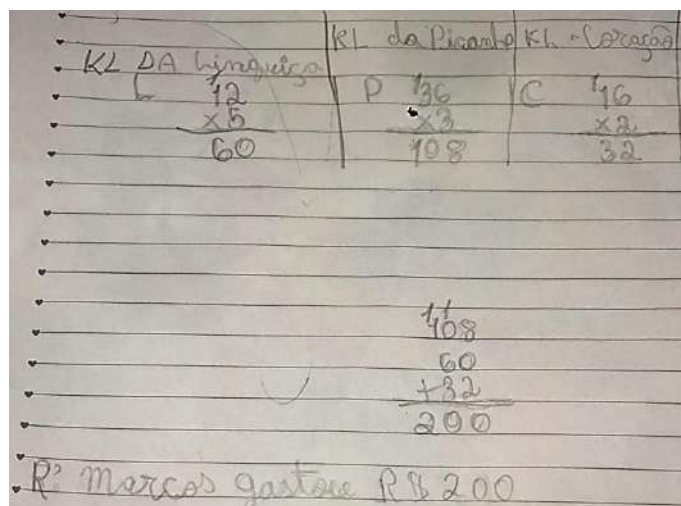 KL DA Linguiça
L 12
x5
60
KL da Picanha
P 136
x3
108
KL - Coração
C 116
x2
32
11
108
60
+32
200
R: Marcos gastou R$ 200